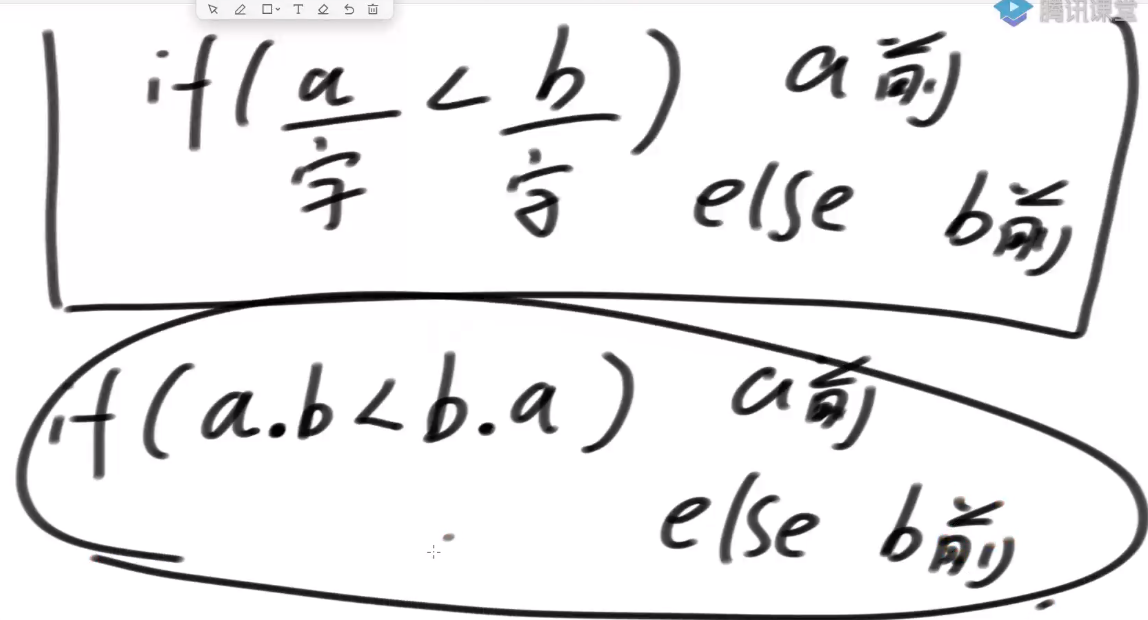 腾讯课堂
if ( a < b ) a前
字 字
else b前
if ( a.b < b.a ) a前
else b前